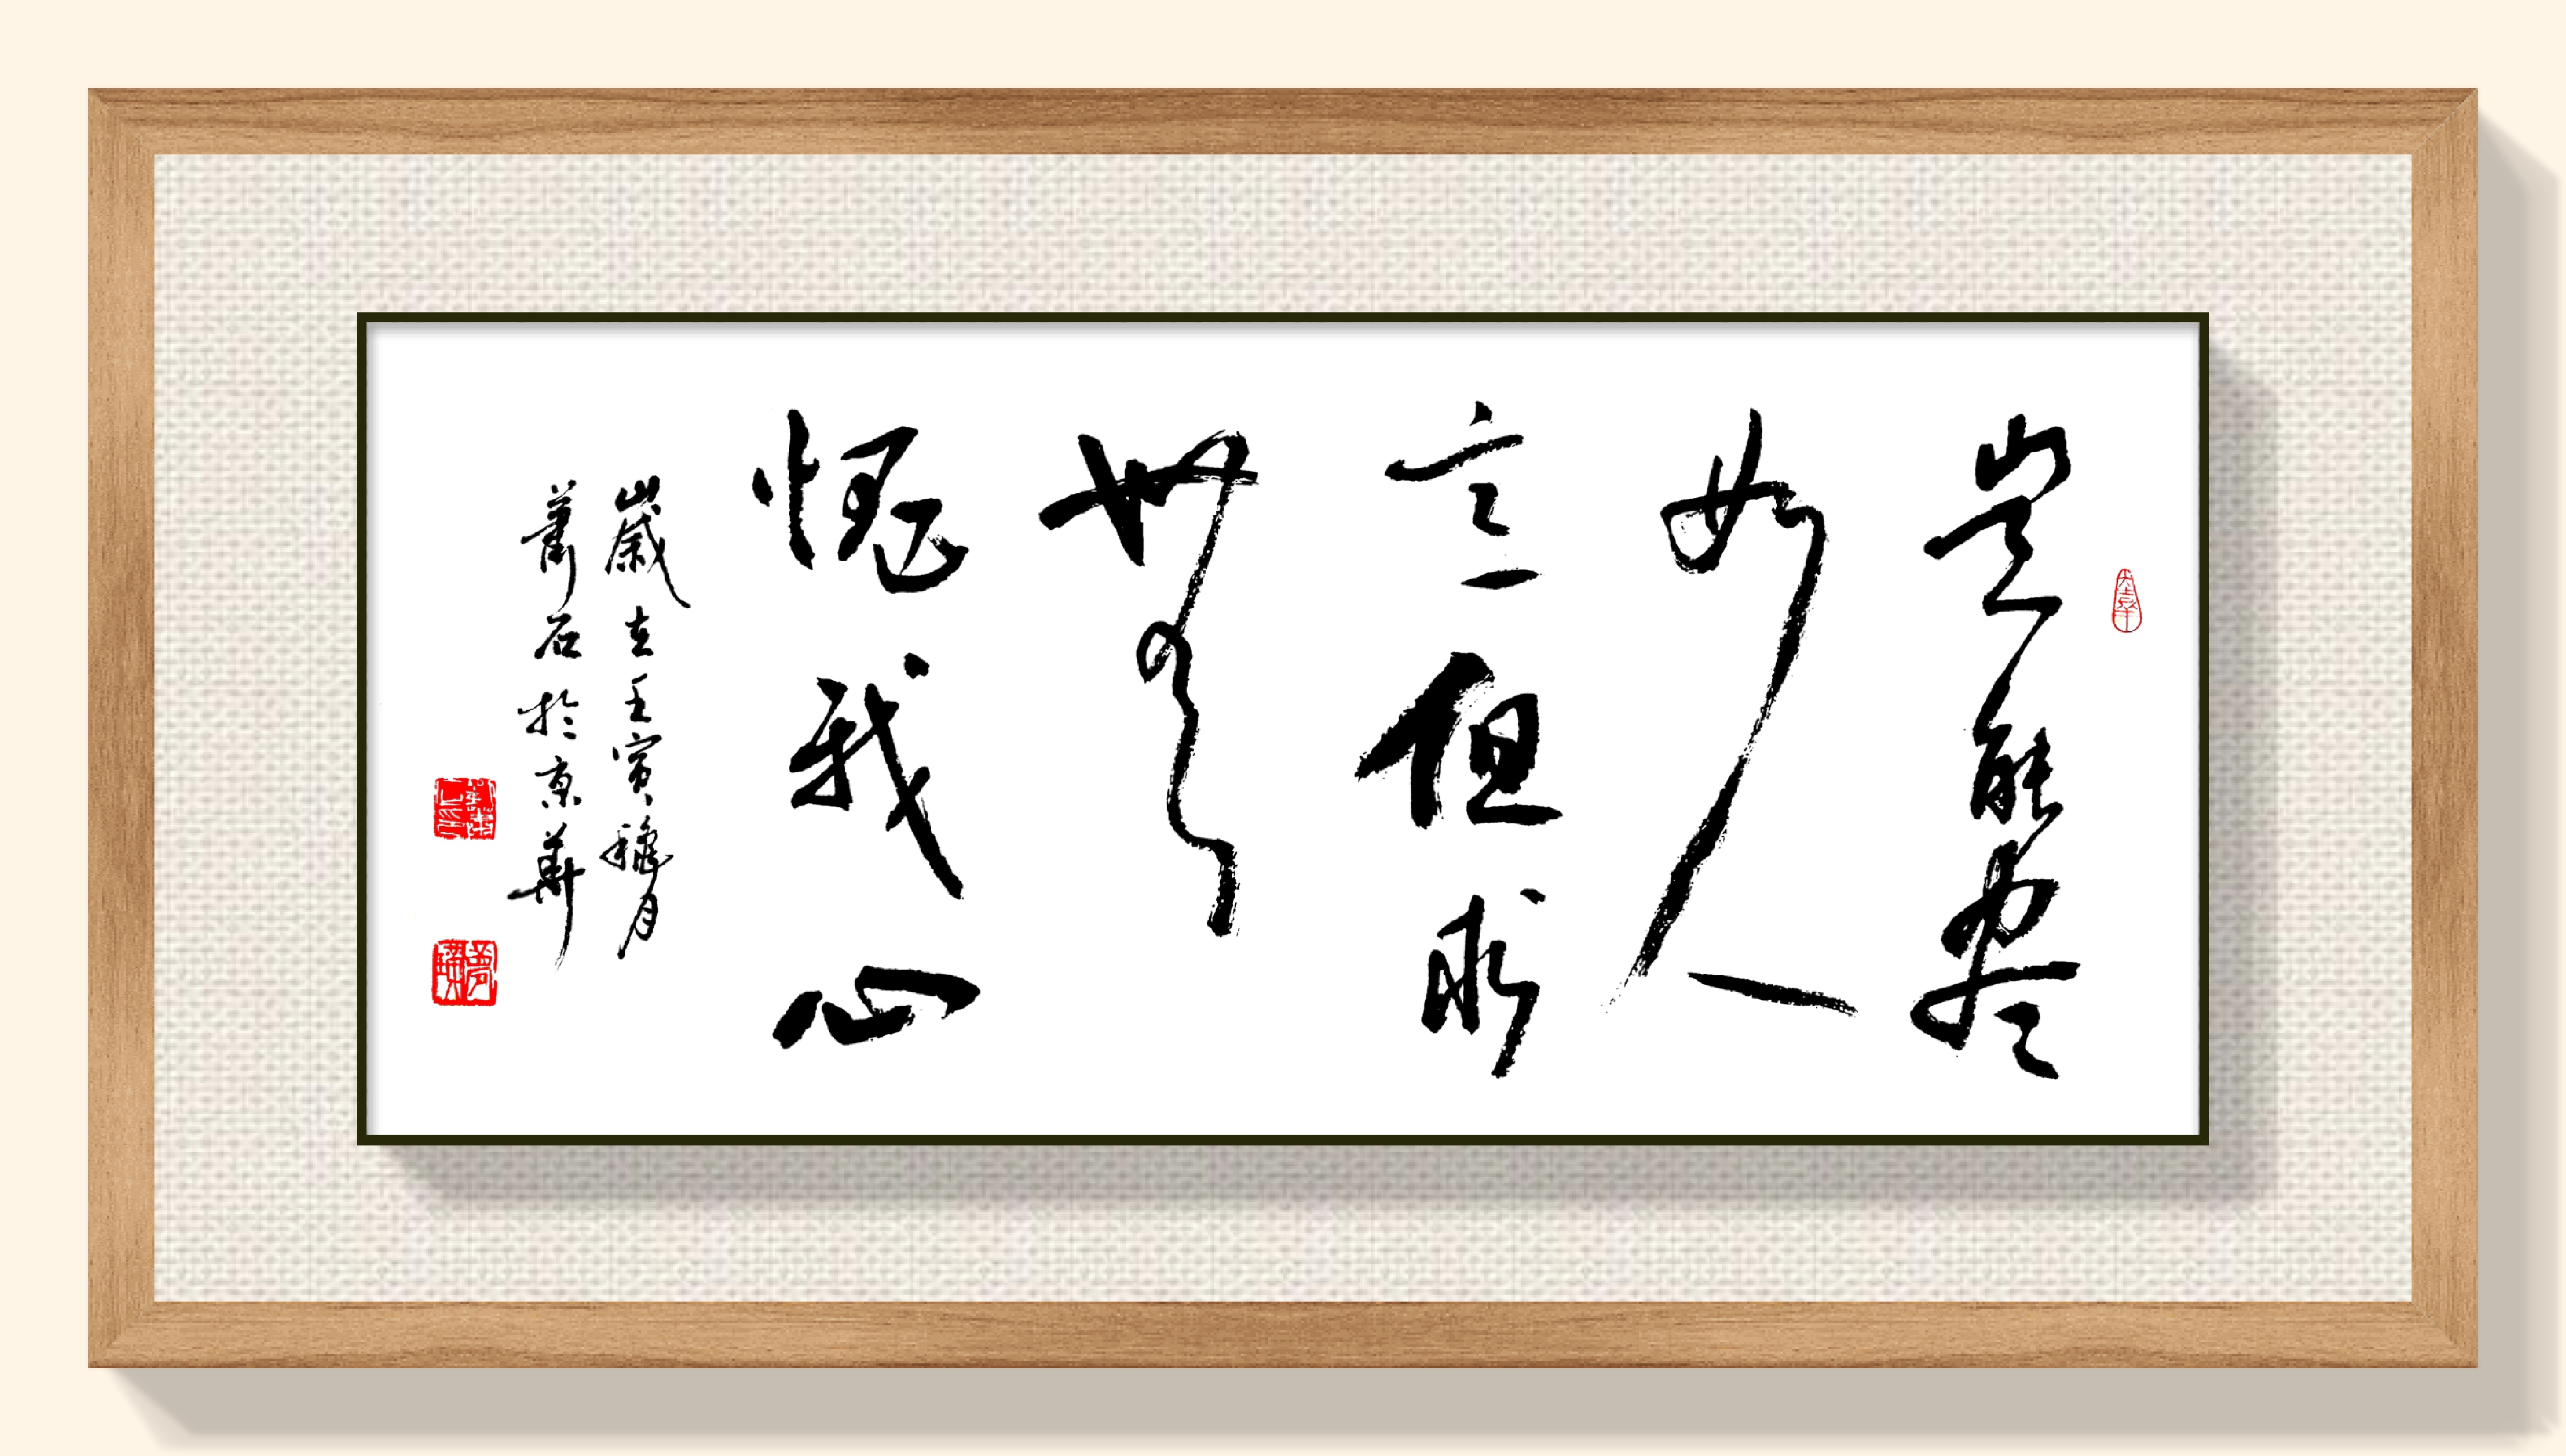 豈能盡
如人
意但求
無
愧我心
歲在壬寅穐月
蕭石於京華